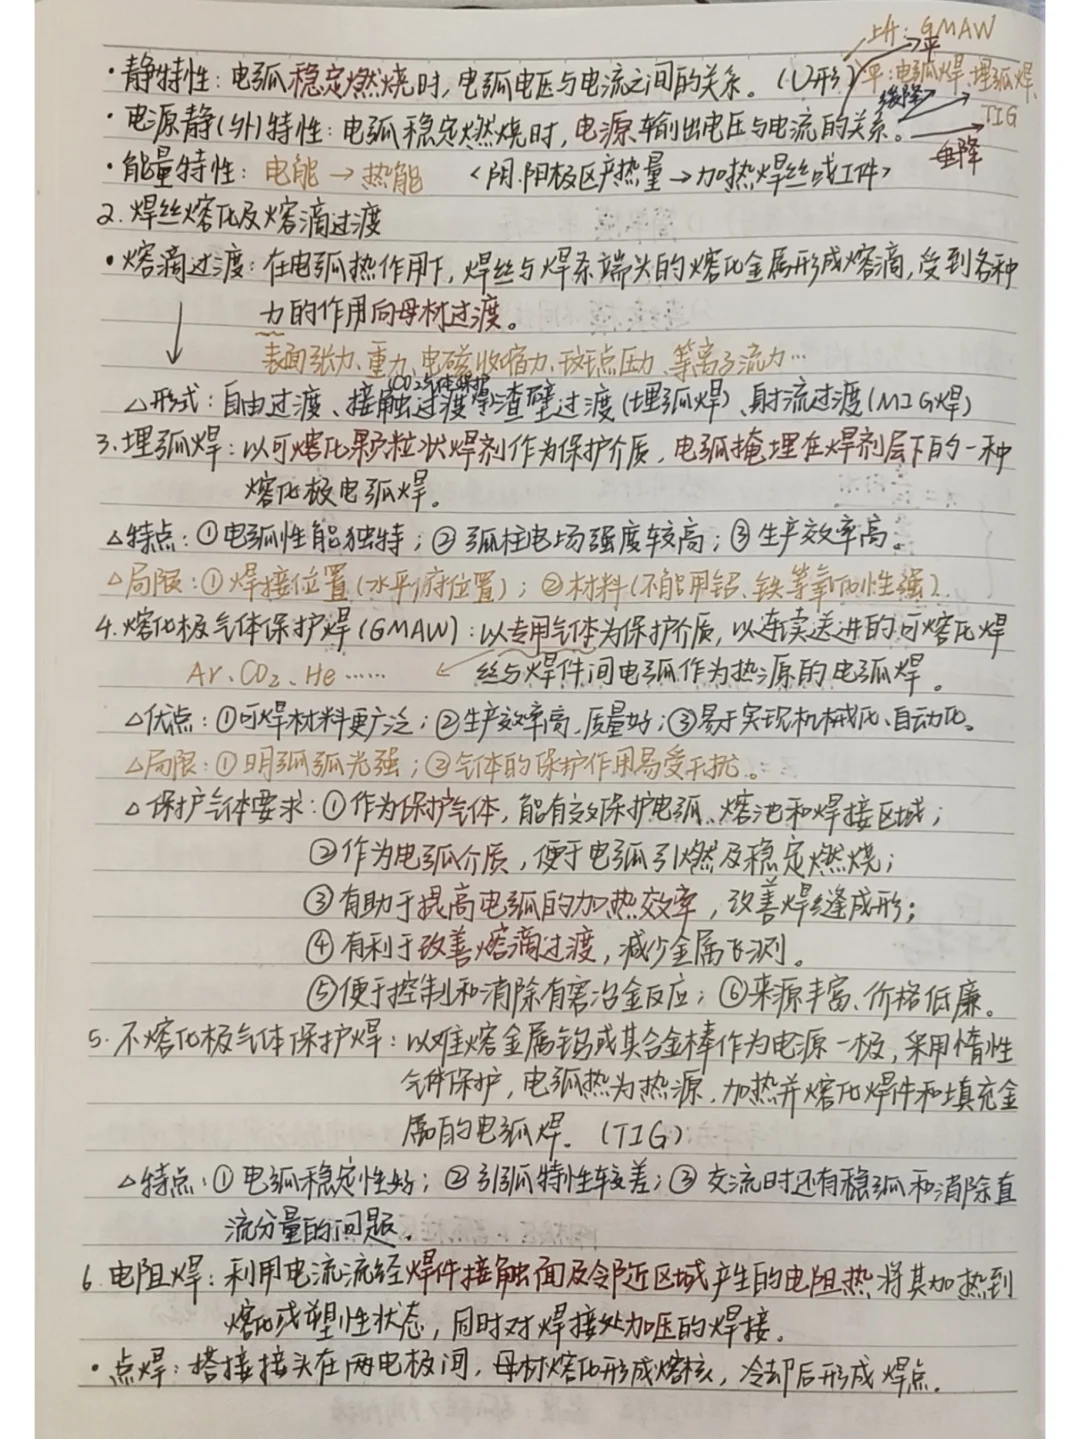 上升：GMAW
平
·静特性：电弧稳定燃烧时，电弧电压与电流之间的关系。（U形）平：电弧焊、埋弧焊、
缓降
TIG
·电源静(外)特性：电弧稳定燃烧时，电源输出电压与电流的关系。
垂降
·能量特性：电能→热能 <阴、阳极区产热量→加热焊丝或工件>
2.焊丝熔化及熔滴过渡
·熔滴过渡：在电弧热作用下，焊丝与焊条端头的熔化金属形成熔滴，受到各种
力的作用向母材过渡。
表面张力、重力、电磁收缩力、斑点压力、等离子流力…
CO2气体保护
△形式：自由过渡、接触过渡、渣壁过渡(埋弧焊)、射流过渡(MIG焊)
3.埋弧焊：以可熔化颗粒状焊剂作为保护介质，电弧掩埋在焊剂层下的一种
熔化极电弧焊。
△特点：①电弧性能独特；②弧柱电场强度较高；③生产效率高。
△局限：①焊接位置(水平俯位置)；②材料(不能用铝、铁等氧化性强).
4.熔化极气体保护焊(GMAW)：以专用气体为保护介质，以连续送进的可熔化焊
Ar、CO2、He…… ← 丝与焊件间电弧作为热源的电弧焊。
△优点：①可焊材料更广泛；②生产效率高、质量好；③易于实现机械化、自动化。
△局限：①明弧弧光强；②气体的保护作用易受干扰。
△保护气体要求：①作为保护气体，能有效保护电弧、熔池和焊接区域；
②作为电弧介质，便于电弧引燃及稳定燃烧；
③有助于提高电弧的加热效率，改善焊缝成形；
④有利于改善熔滴过渡，减少金属飞测。
⑤便于控制和消除有害冶金反应；⑥来源丰富、价格低廉。
5.不熔化极气体保护焊：以难熔金属钨或其合金棒作为电源一极，采用惰性
气体保护，电弧热为热源，加热并熔化焊件和填充金
属的电弧焊.（TIG）
△特点：①电弧稳定性好；②引弧特性较差；③交流时还有稳弧和消除直
流分量的问题.
6.电阻焊：利用电流流经焊件接触面及邻近区域产生的电阻热将其加热到
熔化或塑性状态，同时对焊接处加压的焊接。
·点焊：搭接接头在两电极间，母材熔化形成熔核，冷却后形成焊点.